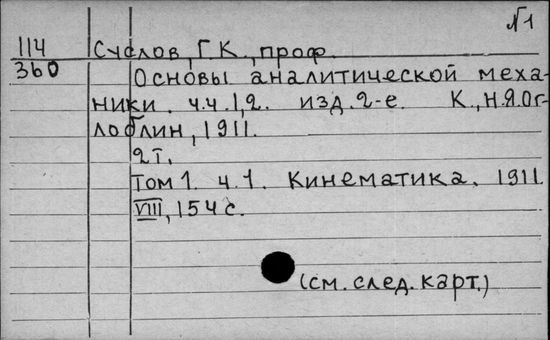 №1
114 Суслов, Г.К., проф.
360 Основы аналитической меха-
ники. ч.ч.1,2. изд.2-е. К., Н.Я.Ог-
лоблин, 1911.
2т.
Том 1. ч.1. Кинематика. 1911.
VIII, 154 с.
(см. след. карт.)